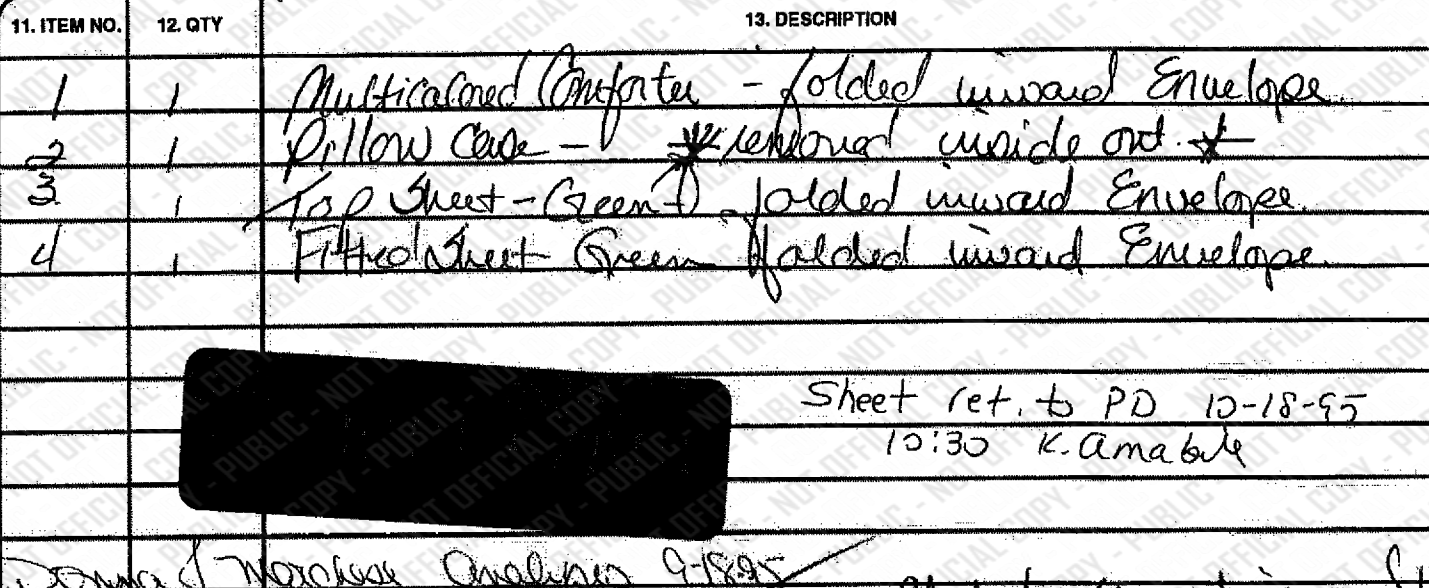 11. ITEM NO. 12. QTY 13. DESCRIPTION
1 1 Multicolored Comforter - folded inward Envelope.
2 1 Pillow Case - * removed inside out. *
3 1 Top Sheet - Green - folded inward Envelope.
4 1 Fitted Sheet Green folded inward Envelope.
Sheet ret. to PD 10-18-95
10:30 K. Amabile
Donna J Marchese Analysis 9-18-95
PUBLIC - NOT OFFICIAL COPY